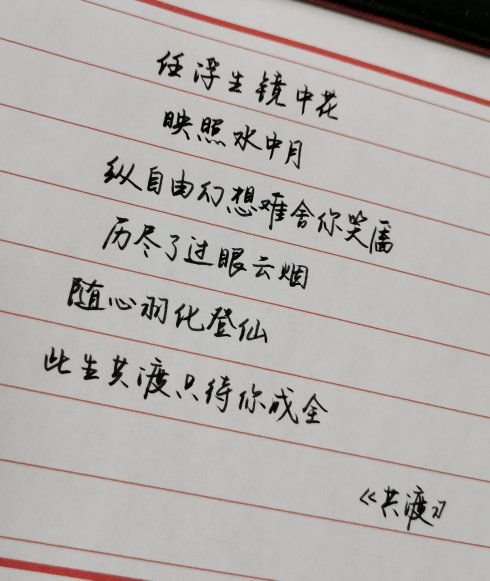 任浮生镜中花
映照水中月
纵自由幻想难舍你笑靥
历尽了过眼云烟
随心羽化登仙
此生共渡只待你成全
《共渡》